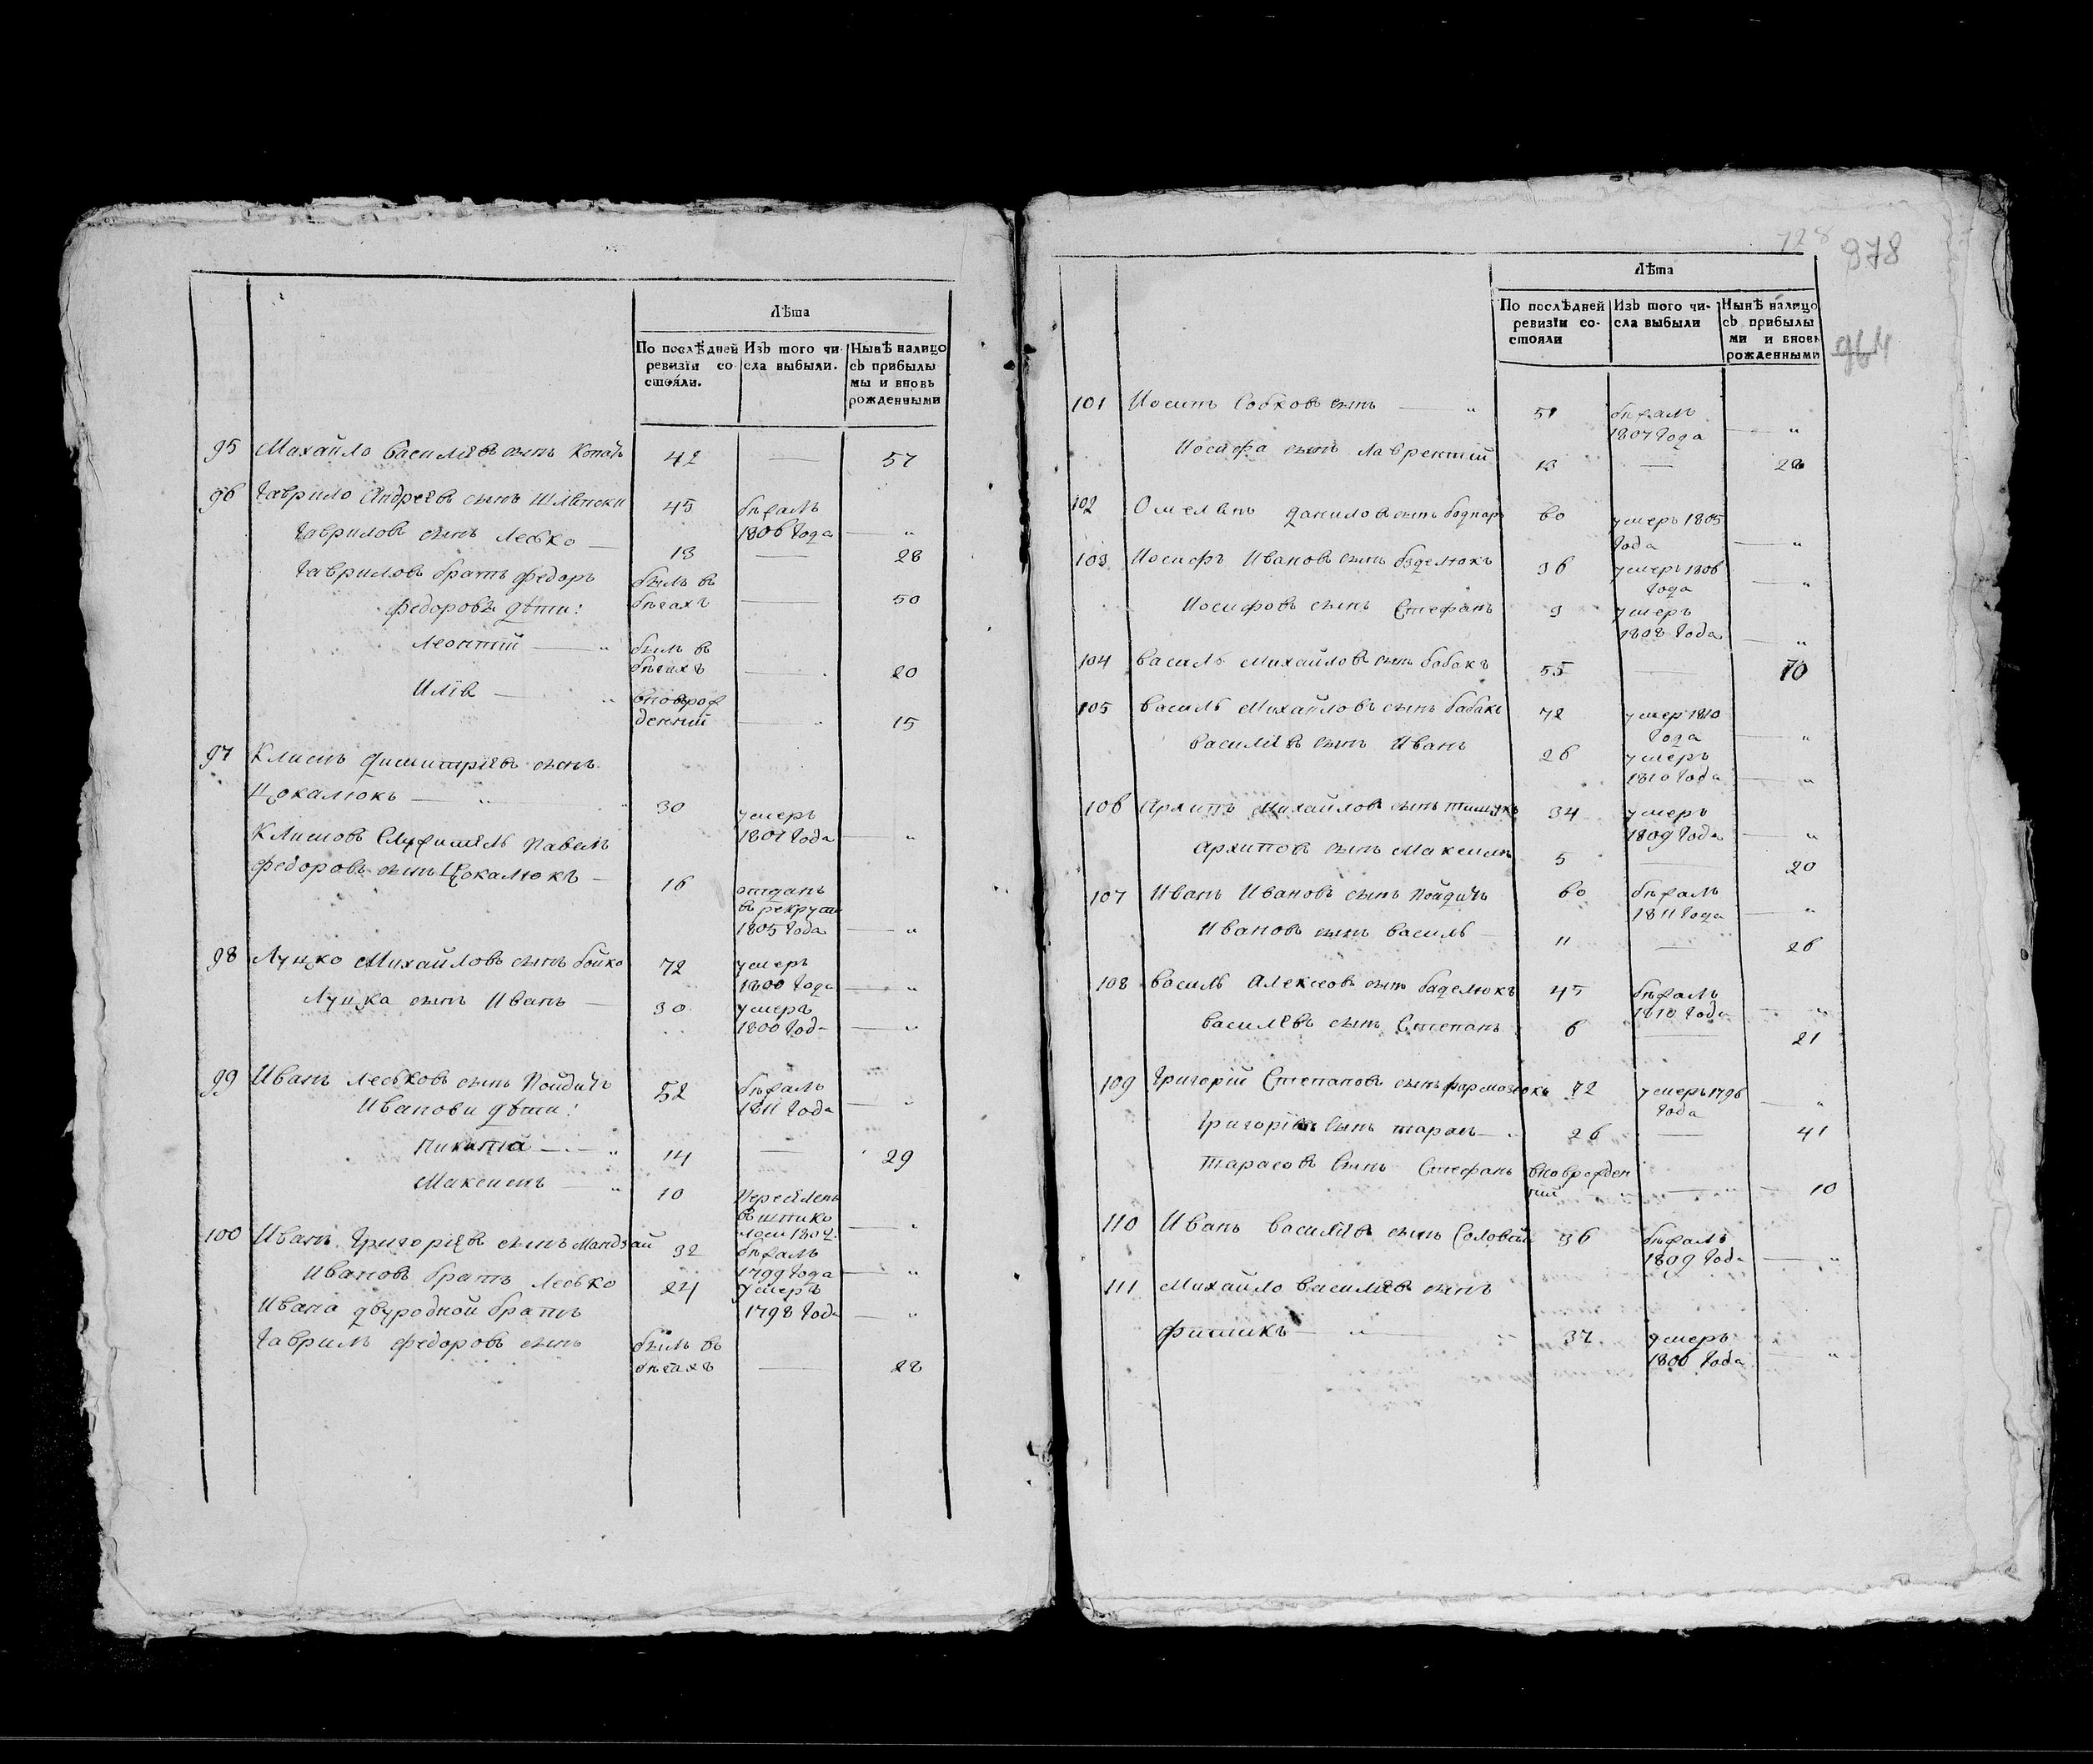 Лѣта
По послѣдней ревизіи со- стояли.
Изъ того чи- сла выбыли.
Нынѣ налицо съ прибылы мы и вновь рожденными
95 Михайло Василіевъ сынъ 42 — 57
96 Гаврило Андреевъ сынъ 45 бѣжалъ
1806 Года — „
Гавриловъ сынъ Лесько — 13 — 28
Гавриловъ братъ Федоръ былъ въ
бѣгахъ — 50
Федоровы дѣти:
Леонтій — „ былъ въ
бѣгахъ — 20
Илія — „ вновьрож
денный — „ 15
97 Климъ Димитріевъ сынъ
Цокалюкъ — „ 30 умеръ
1807 Года — „
Климовъ Павелъ
Федоровъ сынъ Цокалюкъ — 16 отданъ
въ рекруты
1805 Года — „
98 Луцко Михайловъ сынъ Бойко 72 умеръ
1800 Года — „
Луцка сынъ Иванъ — 30 умеръ
1800 Год — „
99 Иванъ Леськовъ сынъ Пойдичъ 52 бѣжалъ
1811 Года — „
Иванови дѣти:
Никита — „ 14 — 29
Максимъ — „ 10 Переяленъ
— „
100 Иванъ Григоріевъ сынъ Мандзай 32 бѣжалъ
1799 Года — „
Ивановъ братъ Лесько 24 умеръ
1798 Года — „
Ивана двуродной братъ
Гаврилъ Федоровъ сынъ былъ въ
бѣгахъ — 28
728 978
964
Лѣта
По послѣдней ревизіи со- стояли
Изъ того чи- сла выбыли
Нынѣ налицо съ прибылы ми и вновь рожденными
101 Иосипъ Собковъ сынъ — „ 51 бѣжалъ
1807 Года — „
Иосифа сынъ Лаврентій 13 — 28
102 Омелянъ Даниловъ сынъ Боднаръ 60 умеръ 1805
Года — „
103 Иосифъ Ивановъ сынъ 36 умеръ 1806
Года — „
Иосифовъ сынъ Стефанъ 9 умеръ
1808 Года — „
104 Василь Михайловъ сынъ Бабакъ 55 — 70
105 Василь Михайловъ сынъ Бабакъ 72 умеръ 1810
Года — „
Василіевъ сынъ Иванъ 26 умеръ
1810 Года — „
106 Архипъ Михайловъ сынъ 34 умеръ
1809 Года — „
Архиповъ сынъ Максимъ 5 — 20
107 Иванъ Ивановъ сынъ Пойдичъ 60 бѣжалъ
1811 Года — „
Ивановъ сынъ Василь — 11 — 26
108 Василь Алексеовъ сынъ Баделюкъ 45 бѣжалъ
1810 Года — „
Василіевъ сынъ Степанъ 6 — 21
109 Григорій Степановъ сынъ 72 умеръ 1796
Года — „
сынъ Тарасъ — „ 26 — 41
Тарасовъ сынъ Стефанъ вноврожден
ній — „ 10
110 Иванъ Василіевъ сынъ Соловей 36 бѣжалъ
1809 Года — „
111 Михайло Василіевъ сынъ
— „ 37 умеръ
1800 Года — „